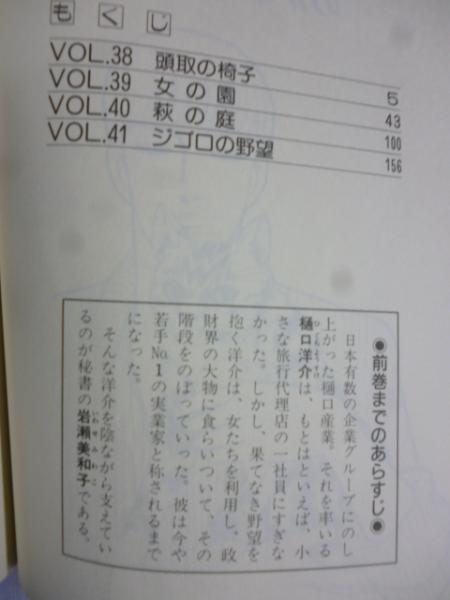 もくじ
VOL.38 頭取の椅子 5
VOL.39 女の園 43
VOL.40 萩の庭 100
VOL.41 ジゴロの野望 156
●前巻までのあらすじ●
日本有数の企業グループにのし
上がった樋口産業。それを率いる
樋口洋介は、もとはといえば、小
さな旅行代理店の一社員にすぎな
かった。しかし、果てなき野望を
抱く洋介は、女たちを利用し、政
財界の大物に食らいついて、その
階段をのぼっていった。彼は今や
若手No.1の実業家と称されるまで
になった。
そんな洋介を陰ながら支えてい
るのが秘書の岩瀬美和子である。